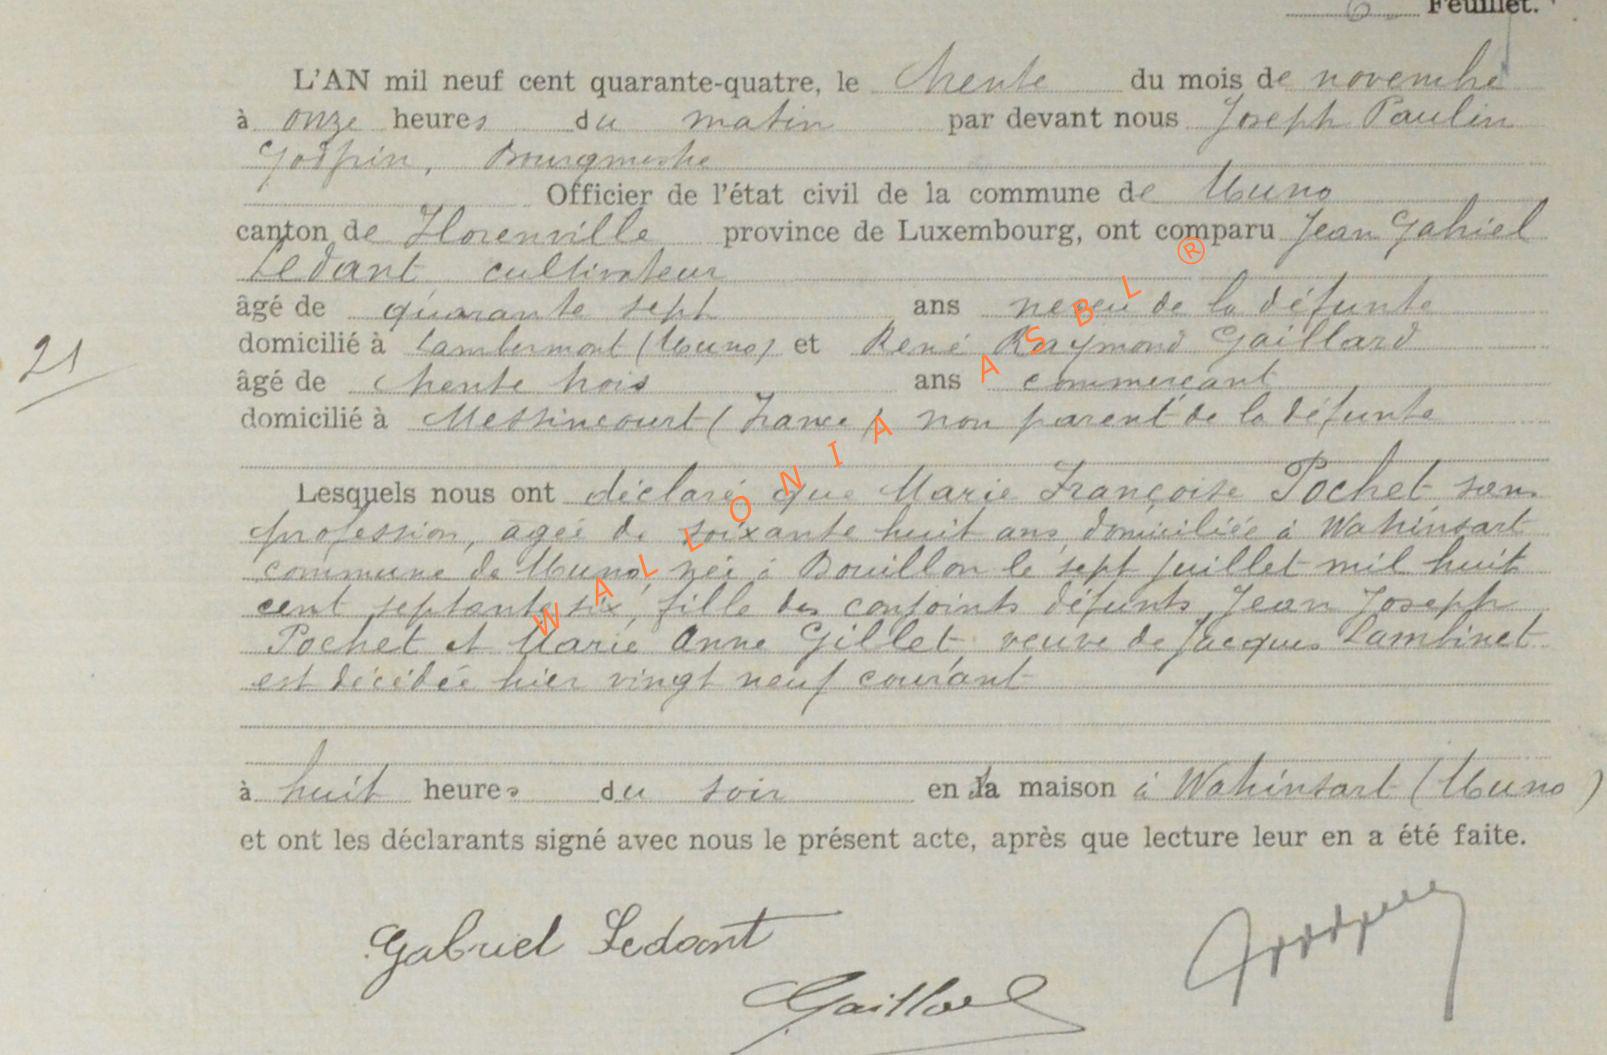 6 Feuillet.
L'AN mil neuf cent quarante-quatre, le trente du mois de novembre
à onze heures du matin par devant nous Joseph Paulin
Godfrin, Bourgmestre
Officier de l'état civil de la commune de Muno
canton de Florenville province de Luxembourg, ont comparu Jean Gabriel
Ledant cultivateur
âgé de quarante sept ans neveu de la défunte
domicilié à Lambermont (Muno) et René Raymond Gaillard
21
âgé de trente trois ans commerçant
domicilié à Messincourt (France) non parent de la défunte
Lesquels nous ont déclaré que Marie Françoise Pochet sans
profession, agée de soixante huit ans, domiciliée à Wahinsart
commune de Muno née à Bouillon le sept juillet mil huit
cent septante six, fille des conjoints défunts Jean Joseph
Pochet et Marie Anne Gillet, veuve de Jacques Lambinet
est décédée hier vingt neuf courant
à huit heures du soir en la maison à Wahinsart (Muno)
et ont les déclarants signé avec nous le présent acte, après que lecture leur en a été faite.
Gabriel Ledant
Gaillard
WALLONIA ASBL ®